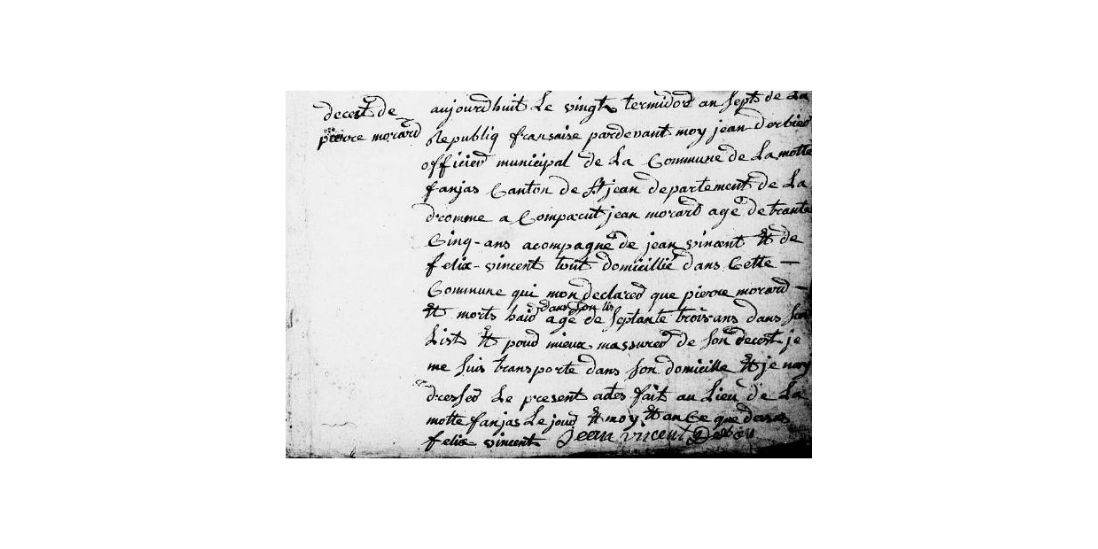 decest de
pierre morard
aujourdhuit Le vingt termidord an sept de La
Republiq fransaise pardevant moy jean
officier municipal de La Commune de Lamotte
fanjas Canton de St jean departement de La
dromme a Comparut jean morard agé de trante
Cinq-ans acompagné de jean vincent Et de
felix-vincent tout domicillié dans Cette
Commune qui mon declared que pierre morard
Et morts haid dans son lis agé de septante trois ans dans son
List Et pour mieux massurer de son decest je
me suis transporte dans son domicille Et je nay
dresser Le present actes fait au Lieu de La
motte fanjas Le jour Et moy Et an Ce que dessus
felix vincent Jean vincent